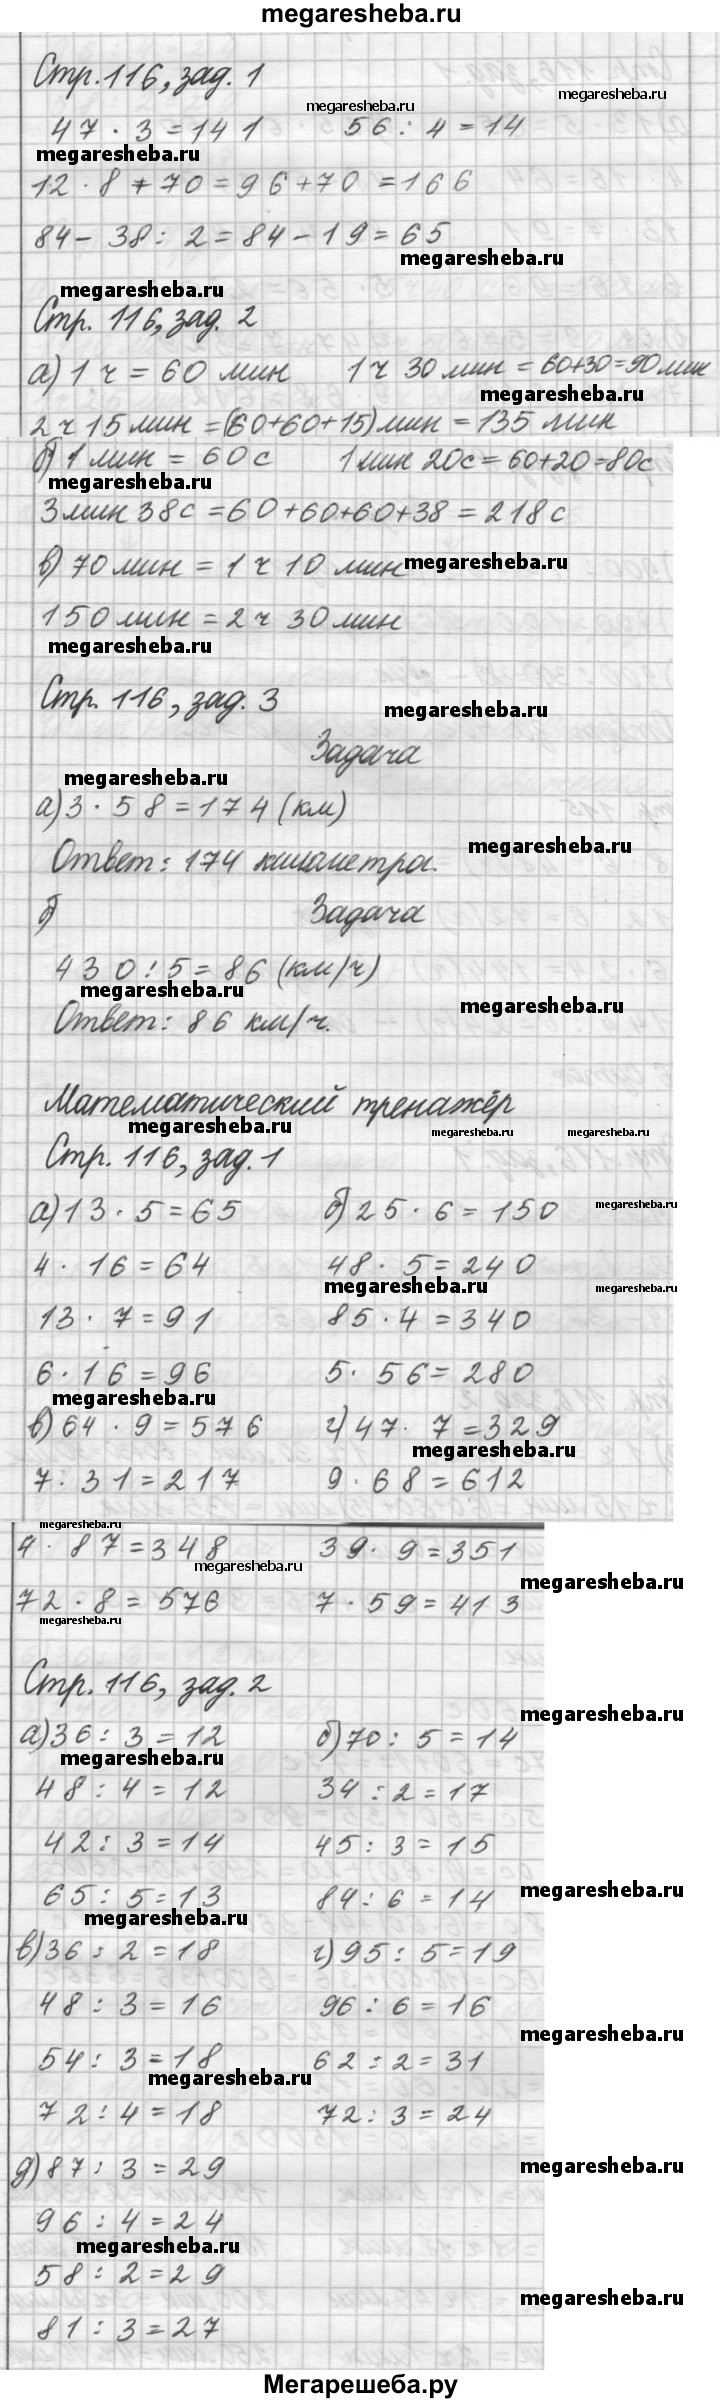 megaresheba.ru
Стр. 116, зад. 1
megaresheba.ru megaresheba.ru
47 · 3 = 141 56 : 4 = 14
megaresheba.ru
12 · 8 + 70 = 96 + 70 = 166
84 - 38 : 2 = 84 - 19 = 65
megaresheba.ru
megaresheba.ru
Стр. 116, зад. 2
а) 1 ч = 60 мин 1 ч 30 мин = 60+30=90 мин
megaresheba.ru
2 ч 15 мин = (60+60+15) мин = 135 мин
б) 1 мин = 60 с 1 мин 20с = 60+20=80с
megaresheba.ru
3 мин 38 с = 60+60+60+38 = 218 с
в) 70 мин = 1 ч 10 мин
megaresheba.ru
150 мин = 2 ч 30 мин
megaresheba.ru
Стр. 116, зад. 3
megaresheba.ru
Задача
megaresheba.ru
а) 3 · 58 = 174 (км)
megaresheba.ru
Ответ: 174 километра.
б) Задача
430 : 5 = 86 (км/ч)
megaresheba.ru
megaresheba.ru
Ответ: 86 км/ч.
Математический тренажёр
megaresheba.ru megaresheba.ru megaresheba.ru
Стр. 116, зад. 1
а) 13 · 5 = 65 б) 25 · 6 = 150
megaresheba.ru
4 · 16 = 64 48 · 5 = 240
megaresheba.ru megaresheba.ru
13 · 7 = 91 85 · 4 = 340
6 · 16 = 96 5 · 56 = 280
megaresheba.ru
в) 64 · 9 = 576 г) 47 · 7 = 329
megaresheba.ru
7 · 31 = 217 9 · 68 = 612
megaresheba.ru
4 · 87 = 348 39 · 9 = 351
megaresheba.ru
megaresheba.ru
72 · 8 = 576 7 · 59 = 413
megaresheba.ru
Стр. 116, зад. 2
megaresheba.ru
а) 36 : 3 = 12 б) 70 : 5 = 14
megaresheba.ru
48 : 4 = 12 34 : 2 = 17
42 : 3 = 14 45 : 3 = 15
65 : 5 = 13 84 : 6 = 14
megaresheba.ru
megaresheba.ru
в) 36 : 2 = 18 г) 95 : 5 = 19
48 : 3 = 16 96 : 6 = 16
megaresheba.ru
54 : 3 = 18 62 : 2 = 31
megaresheba.ru
72 : 4 = 18 72 : 3 = 24
д) 87 : 3 = 29
megaresheba.ru
96 : 4 = 24
megaresheba.ru
58 : 2 = 29
megaresheba.ru
81 : 3 = 27
Мегарешеба.ру